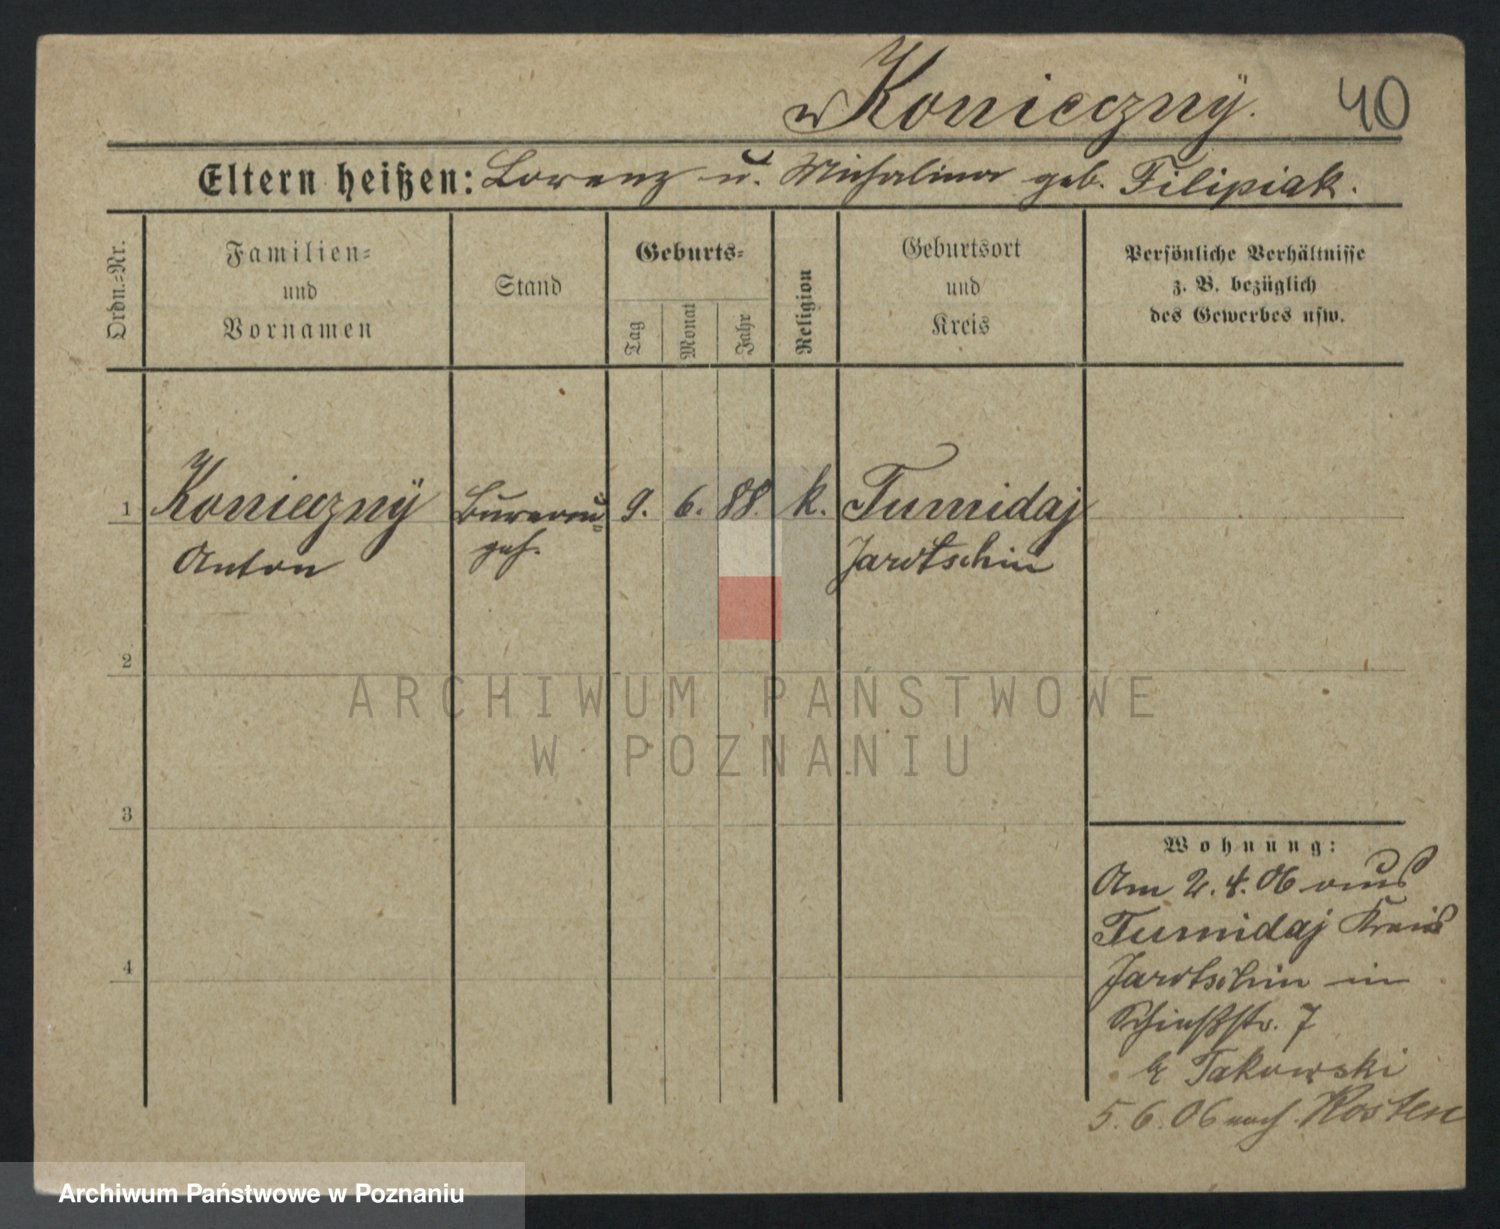 Konieczny.
40
Eltern heißen: Lorenz u. Michalina geb. Filipiak.
Ordn.=Nr.
Familien=
und
Vornamen
Stand
Geburts=
Tag
Monat
Jahr
Religion
Geburtsort
und
Kreis
Persönliche Verhältnisse
z. B. bezüglich
des Gewerbes usw.
1 Konieczny Bureau= 9. 6. 88. k. Tumidaj
Anton geh. Jarotschin
2
3
4
ARCHIWUM PAŃSTWOWE
W POZNANIU
Wohnung:
Am 2.4.06 aus
Tumidaj Kreis
Jarotschin in
Schießstr. 7
Takowski
5.6.06 nach Kosten
Archiwum Państwowe w Poznaniu